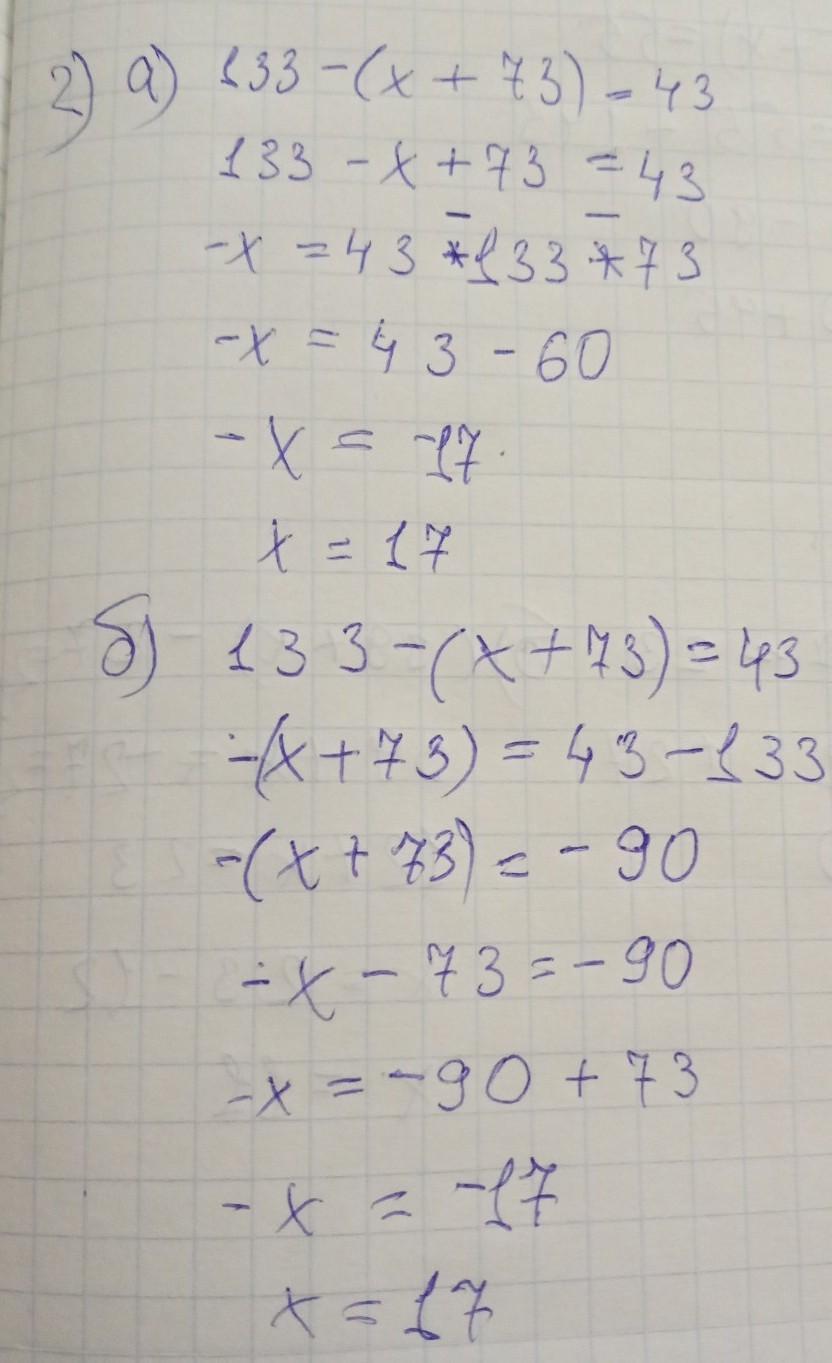 2) а) 133 - (x + 73) = 43
133 - x + 73 = 43
-x = 43 - 133 - 73
-x = 43 - 60
-x = -17
x = 17
б) 133 - (x + 73) = 43
-(x + 73) = 43 - 133
-(x + 73) = -90
-x - 73 = -90
-x = -90 + 73
-x = -17
x = 17